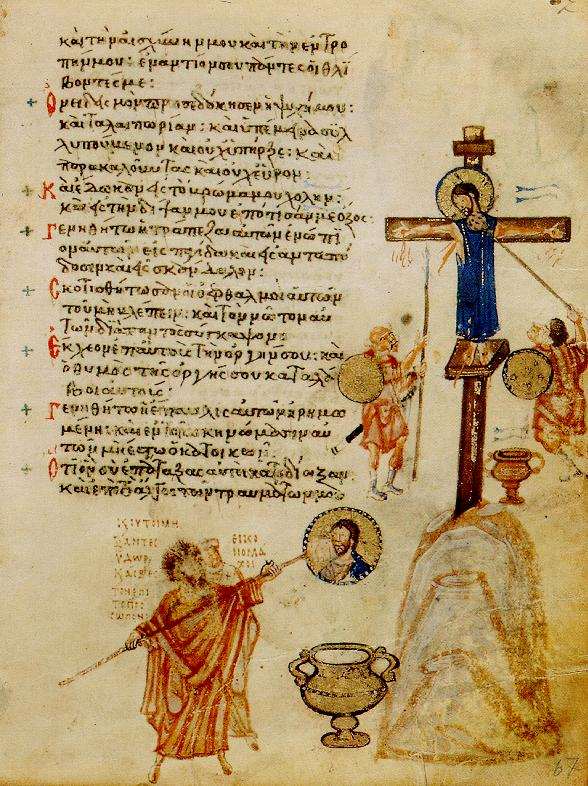 καὶ τὴν αἰσχύνην μου καὶ τὴν ἐντρο
πήν μου: ἐναντίον σου πάντες οἱ θλί
βοντές με:
Ὀνειδισμὸν προσεδόκησεν ἡ ψυχή μου:
καὶ ταλαιπωρίαν: καὶ ὑπέμεινα συλ
λυπούμενον καὶ οὐχ ὑπῆρξε: καὶ
παρακαλοῦντας καὶ οὐχ εὗρον:
Καὶ ἔδωκαν εἰς τὸ βρῶμά μου χολὴν:
καὶ εἰς τὴν δίψαν μου ἐπότισάν με ὄξος:
Γενηθήτω ἡ τράπεζα αὐτῶν ἐνώπι
ον αὐτῶν εἰς παγίδα καὶ εἰς ἀνταπό
δοσιν καὶ εἰς σκάνδαλον:
Σκοτισθήτωσαν οἱ ὀφθαλμοὶ αὐτῶν
τοῦ μὴ βλέπειν: καὶ τὸν νῶτον αὐ
τῶν διὰ παντὸς σύγκαμψον:
Ἔκχεον ἐπ' αὐτοὺς τὴν ὀργήν σου: καὶ
ὁ θυμὸς τῆς ὀργῆς σου καταλά
βοι αὐτούς:
Γενηθήτω ἡ ἔπαυλις αὐτῶν ἠρημω
μένη: καὶ ἐν τοῖς σκηνώμασιν αὐ
τῶν μὴ ἔστω ὁ κατοικῶν:
Ὅτι ὃν σὺ ἐπάταξας αὐτοὶ κατεδίωξαν:
καὶ ἐπὶ τὸ ἄλγος τῶν τραυμάτων μου
ΞΑΝΤΕΣ
ΥΔΩΡ
ΕΙΚΟ
ΝΟΜΑ
ΧΟΙ
67